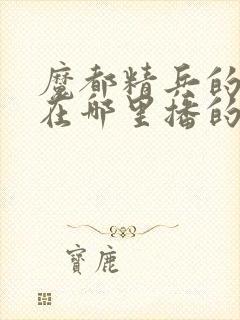 魔都精兵的
在哪里播的
寶鹿